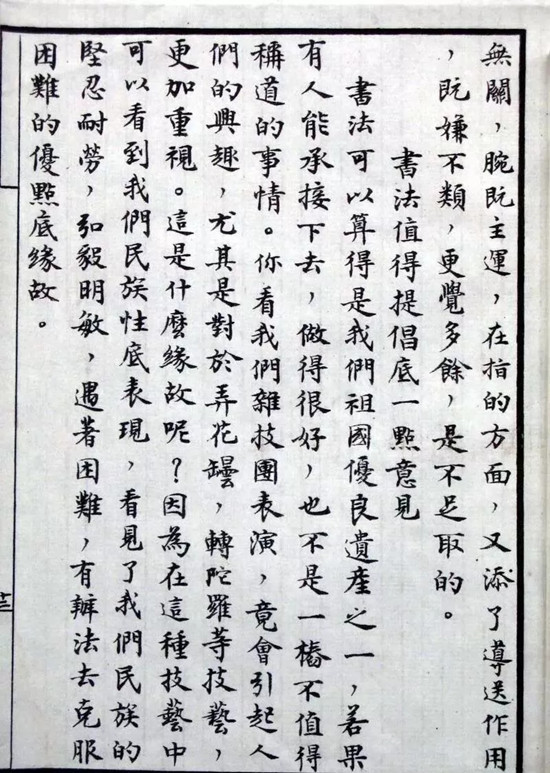 無關，腕既主運，在指的方面，又添了導送作用
，既嫌不類，更覺多餘，是不足取的。
書法值得提倡底一點意見
書法可以算得是我們祖國優良遺產之一，若果
有人能承接下去，做得很好，也不是一樁不值得
稱道的事情。你看我們雜技團表演，竟會引起人
們的興趣，尤其是對於弄花罎，轉陀羅等技藝，
更加重視。這是什麼緣故呢？因為在這種技藝中
可以看到我們民族性底表現，看見了我們民族的
堅忍耐勞，弘毅明敏，遇著困難，有辦法去克服
困難的優點底緣故。
十三